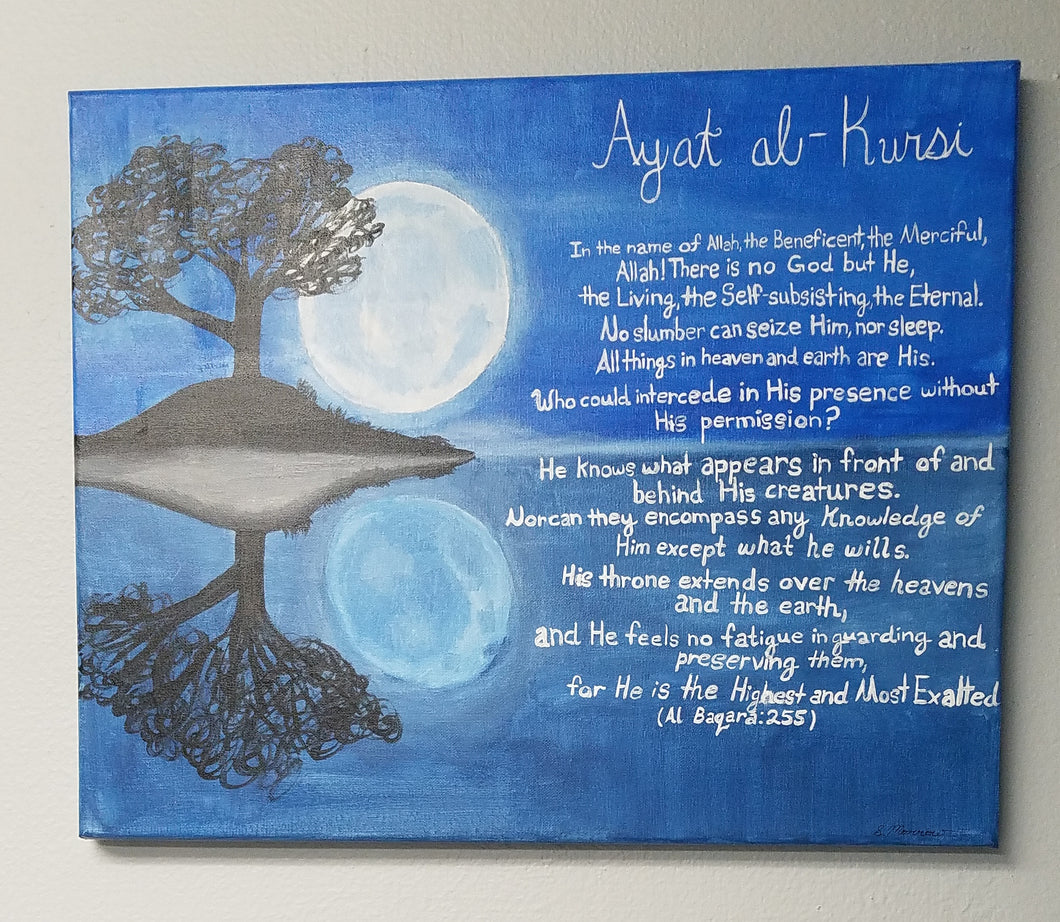 Ayat al-Kursi
In the name of Allah, the Beneficent, the Merciful,
Allah! There is no God but He,
the Living, the Self-subsisting, the Eternal.
No slumber can seize Him, nor sleep.
All things in heaven and earth are His.
Who could intercede in His presence without
His permission?
He knows what appears in front of and
behind His creatures.
Nor can they encompass any knowledge of
Him except what he wills.
His throne extends over the heavens
and the earth,
and He feels no fatigue in guarding and
preserving them,
for He is the Highest and Most Exalted
(Al Baqara:255)